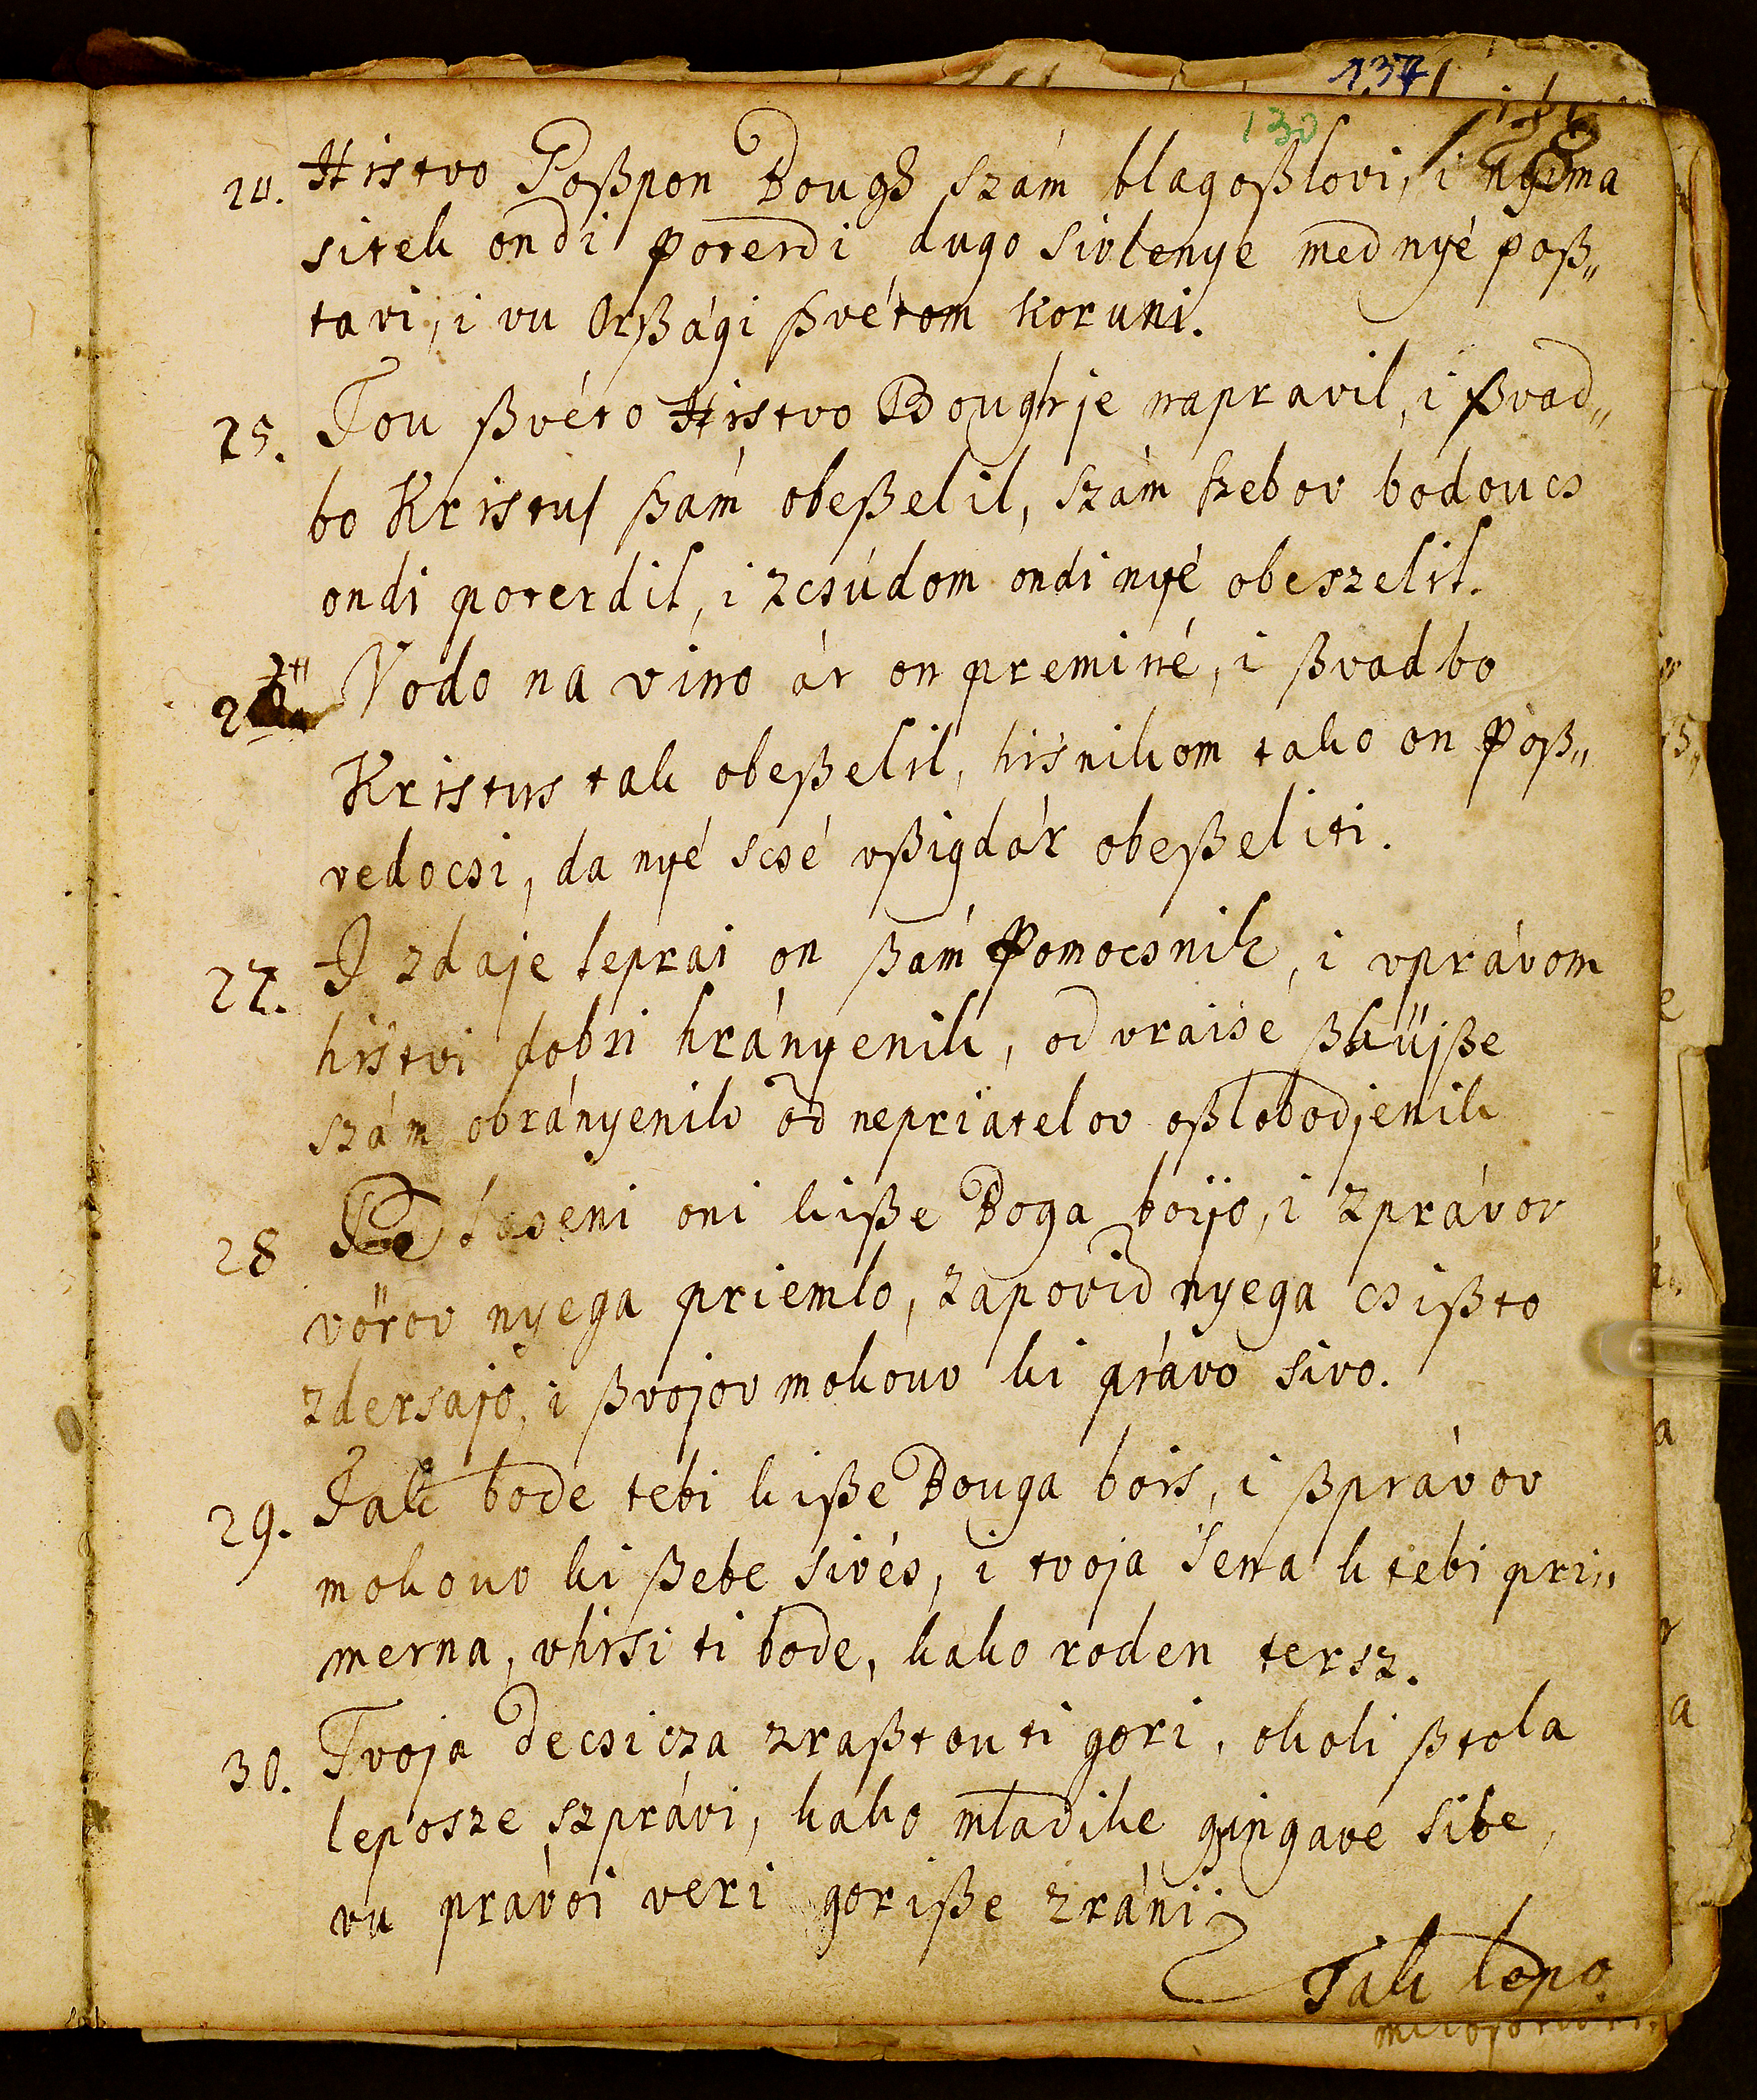 137
130
24. Histvo Goßpon Bough szám blagoßlovi, i nyima
sitek ondi poterdi, dugo sivlenye med nyé poß„
tavi, i vu Orßági ßvétom koruni.
25. Tou ßvéto Histvo Bough je napravil, i ßvad„
bo Kristus ßam obeßelil, szám szebov bodoucs
ondi poterdil, i zcsúdom ondi nyé obeszelil.
Vodo na vino ár on preminé, i ßvadbo
Kristus tak obeßelil, hisnikom tako on poß„
vedocsi, da nyé scsé vßigdár obeßeliti.
27. I zdaje leprai on ßám Pomocsnik, i vprávom
histvi dobri hrányenik, od vraisé ßküiße
szám obrányenik od nepriatelov oßlobodjenik
28 oni kiße Boga boijo, i zprávov
vörov nyega priemlo, zapovid nyega csißto
zdersajo, i ßvojov mokouv ki právo sivo.
29. Tak bode tebi kiße Bouga bois, i ßprávov
mokouv ki ßebe sivés, i tvoja sena k tebi pri„
merna, vhisi ti bode, kako roden tersz.
30. Tvoja decsicza zraßtouti gori, okoli ßtola
leposze szprávi, kako mladike gingave sibe,
vu právoi veri goriße zránii
Tak lepo